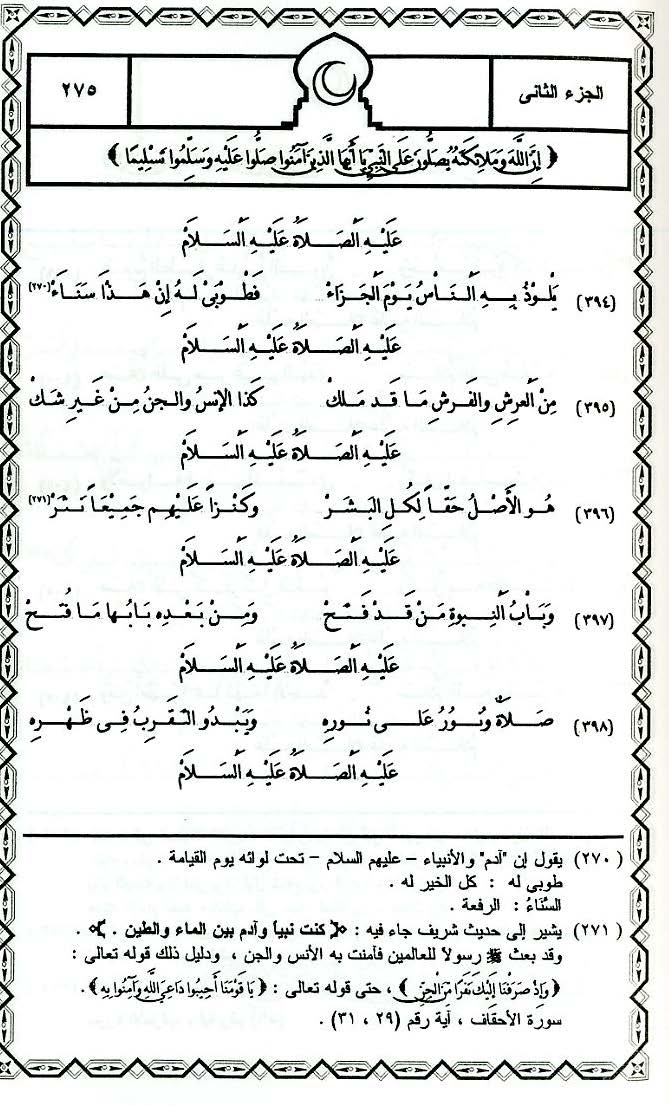 الجزء الثانى
٢٧٥
﴿ إِنَّ اللَّهَ وَمَلَائِكَتَهُ يُصَلُّونَ عَلَى النَّبِيِّ يَا أَيُّهَا الَّذِينَ آمَنُوا صَلُّوا عَلَيْهِ وَسَلِّمُوا تَسْلِيمًا ﴾
عَلَيْهِ الصَّلَاةُ عَلَيْهِ السَّلَامْ
(٣٩٤) يَلُوذُ بِهِ النَّاسُ يَوْمَ الْجَزَاءْ فَطُوبَىْ لَهُ إِنْ هَذَا سَنَاءْ (٢٧٠)
عَلَيْهِ الصَّلَاةُ عَلَيْهِ السَّلَامْ
(٣٩٥) مِنْ الْعَرِشِ والفَرشِ مَا قَد مَلكْ كَذا الإنسُ والجنُ مِنْ غَيرِ شكْ
عَلَيْهِ الصَّلَاةُ عَلَيْهِ السَّلَامْ
(٣٩٦) هُو الأَصْلُ حَقْاً لِكُلِ البَشَرْ وَكَنْزاً عَلَيْهِم جَمِيْعَاً نَثَرْ (٢٧١)
عَلَيْهِ الصَّلَاةُ عَلَيْهِ السَّلَامْ
(٣٩٧) وَبَاْبُ النِبوةِ مَنْ قَدْ فَتَحْ وَمِنْ بَعْدِه بَابُها مَا فُتحْ
عَلَيْهِ الصَّلَاةُ عَلَيْهِ السَّلَامْ
(٣٩٨) صَلَاةٌ وَنُوْرُ عَلَى نُورِه وَيَبْدُو التَقَربُ فِى ظَهْرِه
عَلَيْهِ الصَّلَاةُ عَلَيْهِ السَّلَامْ
(٢٧٠) يقول إن "آدم" والأنبياء – عليهم السلام – تحت لوائه يوم القيامة .
طوبى له : كل الخير له .
السَّنَاءُ : الرفعة .
(٢٧١) يشير إلى حديث شريف جاء فيه : ﴿ كنت نبياً وآدم بين الماء والطين . ﴾ .
وقد بعث ﷺ رسولاً للعالمين فآمنت به الأنس والجن ، ودليل ذلك قوله تعالى :
﴿ وَإِذْ صَرَفْنَا إِلَيْكَ نَفَرًا مِنَ الْجِنِّ ﴾ ، حتى قوله تعالى : ﴿ يَا قَوْمَنَا أَجِيبُوا دَاعِيَ اللَّهِ وَآمِنُوا بِهِ ﴾ .
سورة الأحقاف ، آية رقم (٢٩ ، ٣١) .